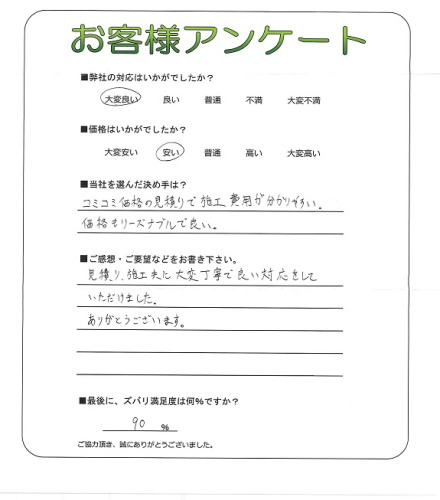 お客様アンケート
■弊社の対応はいかがでしたか？
大変良い 良い 普通 不満 大変不満
■価格はいかがでしたか？
大変安い 安い 普通 高い 大変高い
■当社を選んだ決め手は？
コミコミ価格の見積りで施工費用が分かりやすい。
価格もリーズナブルで良い。
■ご感想・ご要望などをお書き下さい。
見積り、施工共に大変丁寧で良い対応をして
いただけました。
ありがとうございます。
■最後に、ズバリ満足度は何%ですか？
90 %
ご協力頂き、誠にありがとうございました。